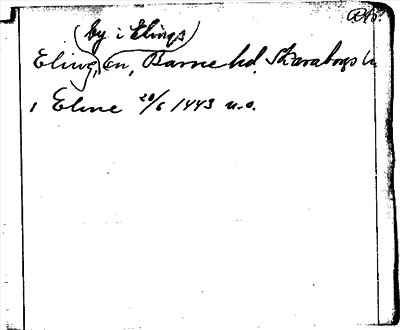 (by i Elings)
Eling, sn, Barne hd. Skaraborgs l.
i Eline 20/6 1443 u.o.